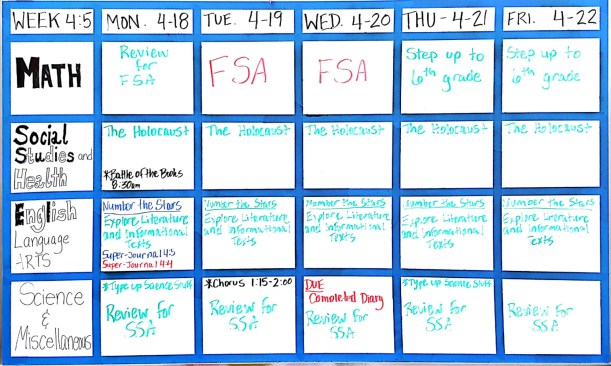 WEEK 4:5
MON. 4-18
TUE. 4-19
WED. 4-20
THU - 4-21
FRI. 4-22
MATH
Review
for
FSA
FSA
FSA
Step up to
6th grade
Step up to
6th grade
Social
Studies and
Health
The Holocaust
*Battle of the Books
8:30am
The Holocaust
The Holocaust
The Holocaust
The Holocaust
English
Language
ARTS
Number the Stars
Explore Literature
and Informational
Texts
Super-Journal 4:3
Super-Journal 4:4
Number the Stars
Explore Literature
and Informational
Texts
Number the Stars
Explore Literature
and Informational
Texts
Number the Stars
Explore Literature
and Informational
Texts
Number the Stars
Explore Literature
and Informational
Texts
Science
&
Miscellaneous
*Type up Science Stuff
Review for
SSA
*Chorus 1:15-2:00
Review for
SSA
DUE
Completed Diary
Review for
SSA
*Type up Science Stuff
Review for
SSA
Review for
SSA